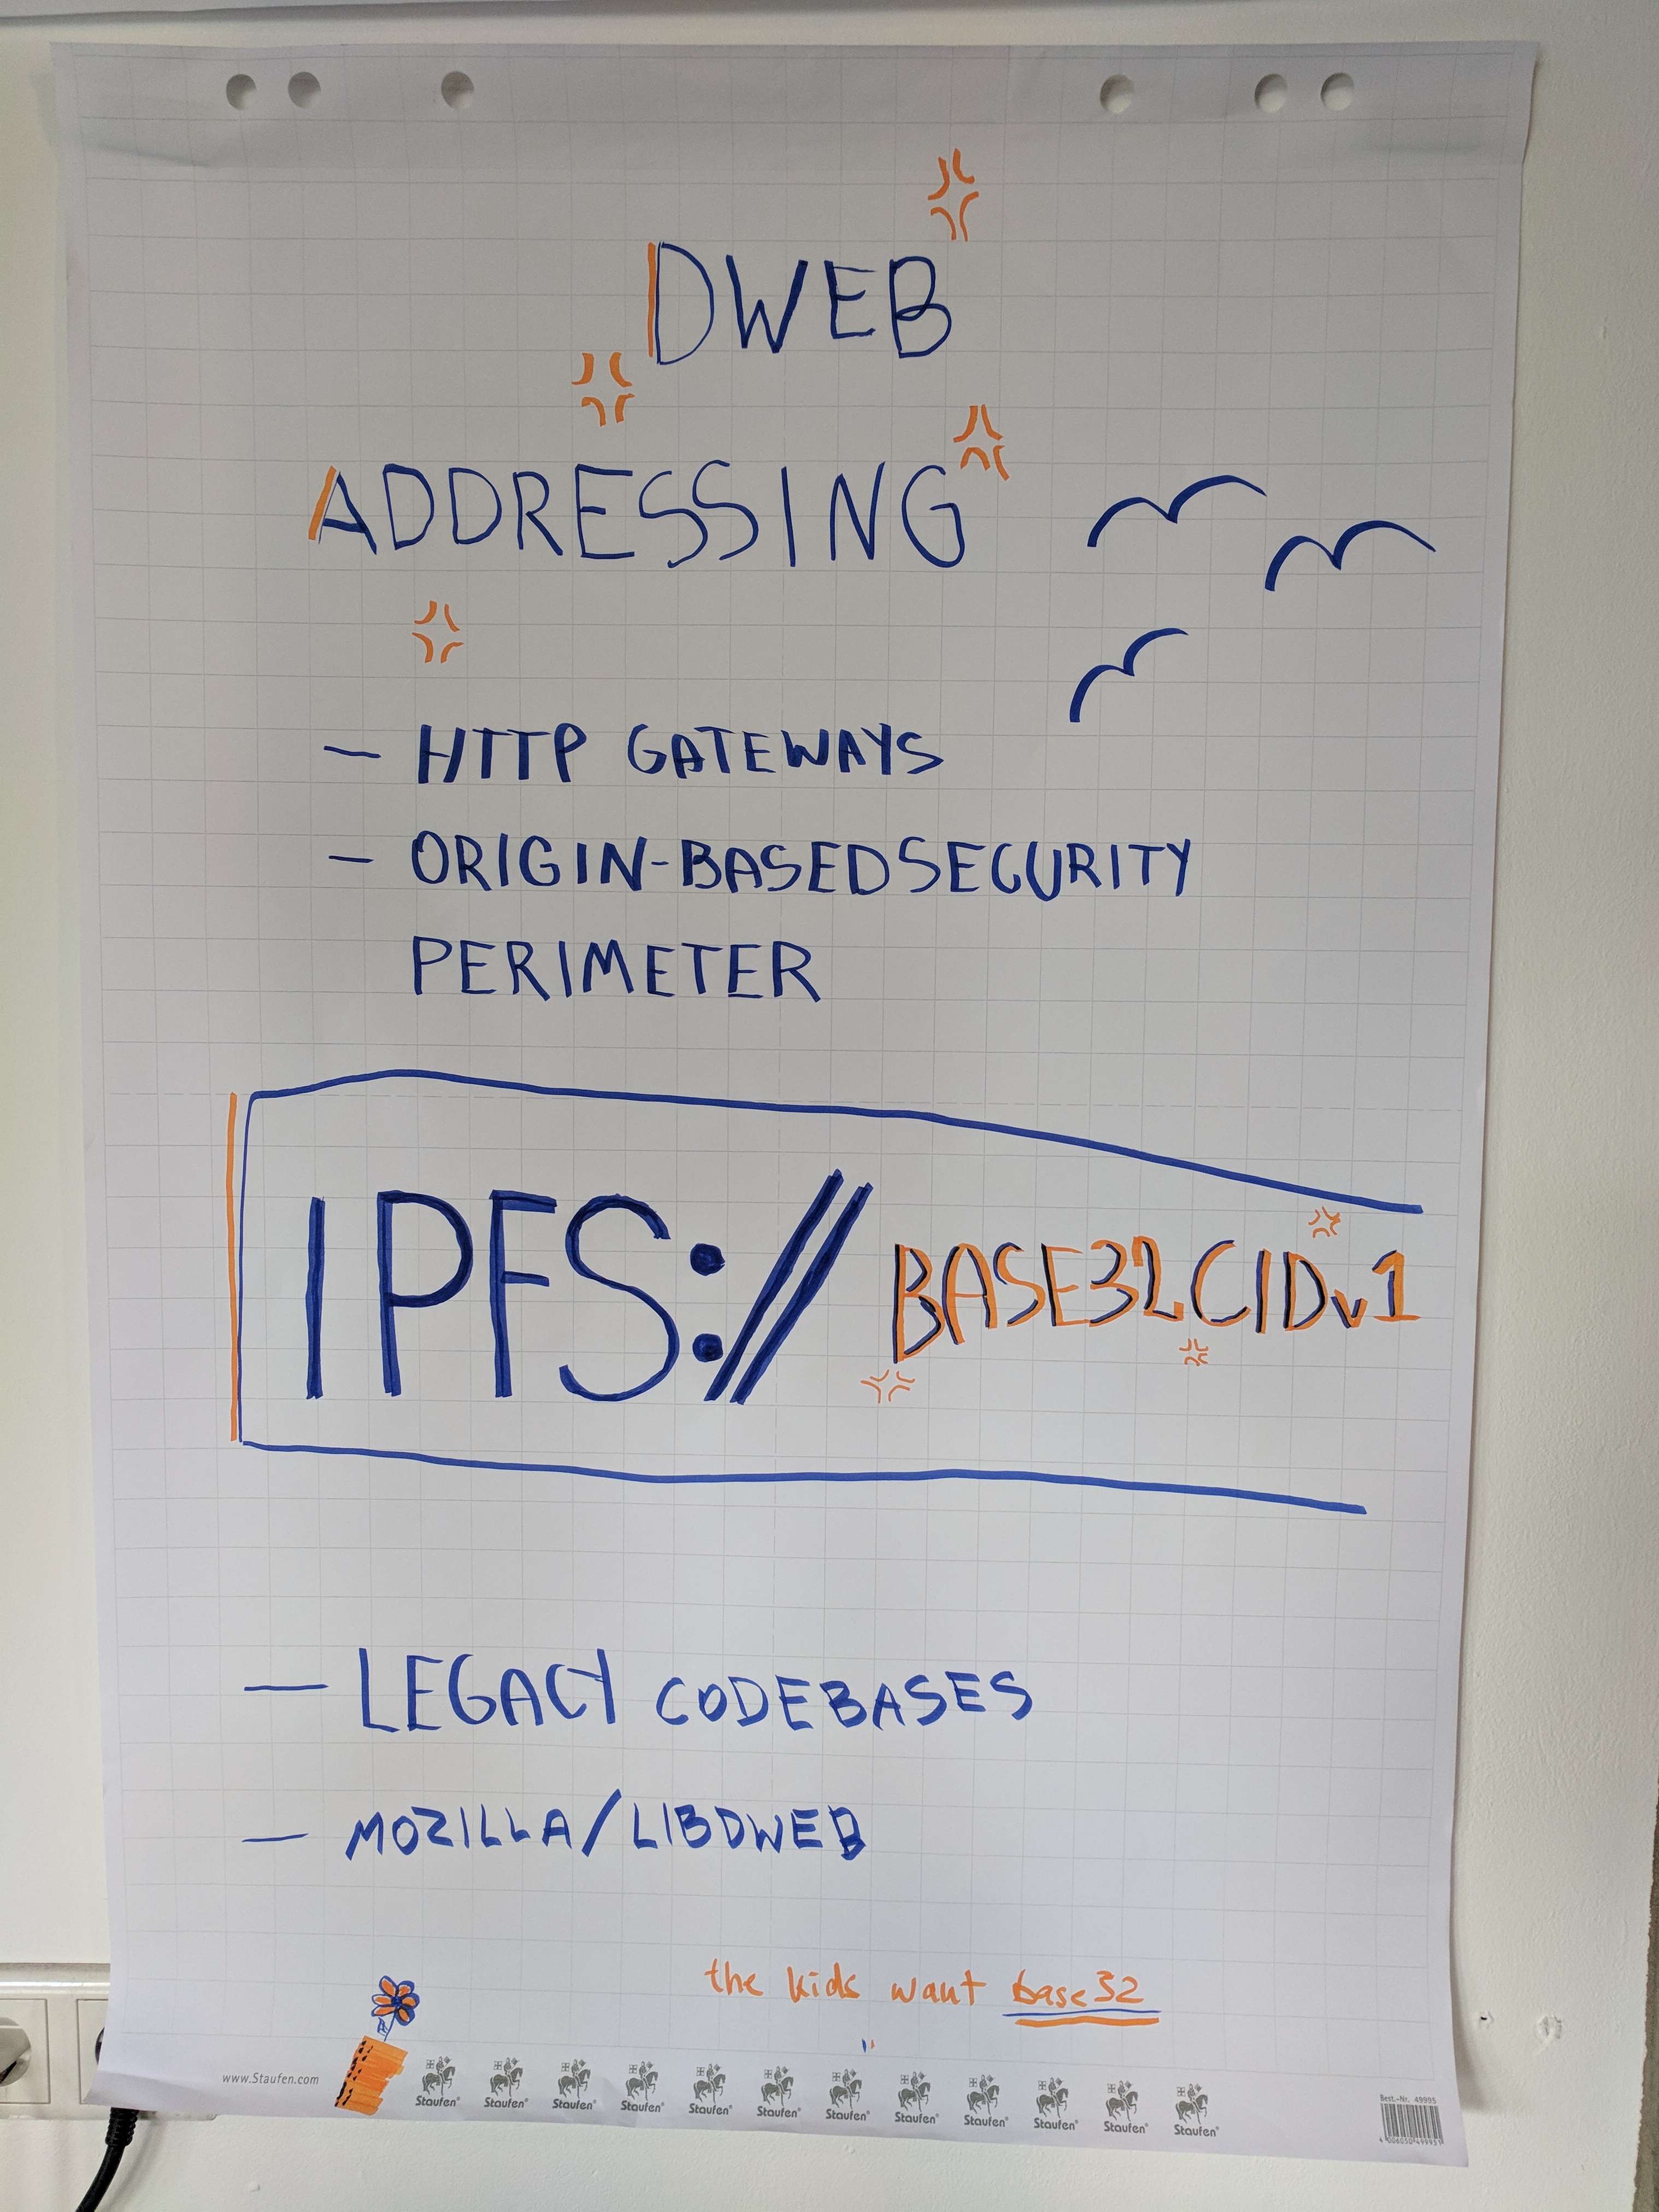 DWEB
ADDRESSING
— HTTP GATEWAYS
— ORIGIN-BASED SECURITY
PERIMETER
IPFS:// BASE32CIDv1
— LEGACY CODEBASES
— MOZILLA/LIBDWEB
the kids want base32
www.Staufen.com
Staufen® Staufen® Staufen® Staufen® Staufen® Staufen® Staufen® Staufen® Staufen® Staufen® Staufen® Staufen®
Best.-Nr. 49995
4 006050 499951